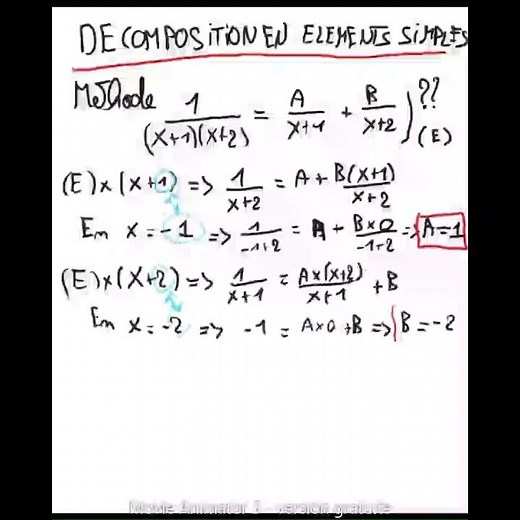 DECOMPOSITION EN ELEMENTS SIMPLES
Méthode 1/((x+1)(x+2)) = A/(x+1) + B/(x+2) ) ?? (E)
(E)x(x+1) => 1/(x+2) = A + B(x+1)/(x+2)
En x = -1 => 1/(-1+2) = A + Bx0/(-1+2) => A=1
(E)x(x+2) => 1/(x+1) = Ax(x+2)/(x+1) + B
En x = -2 => -1 = Ax0 + B => B = -2
version gratuite